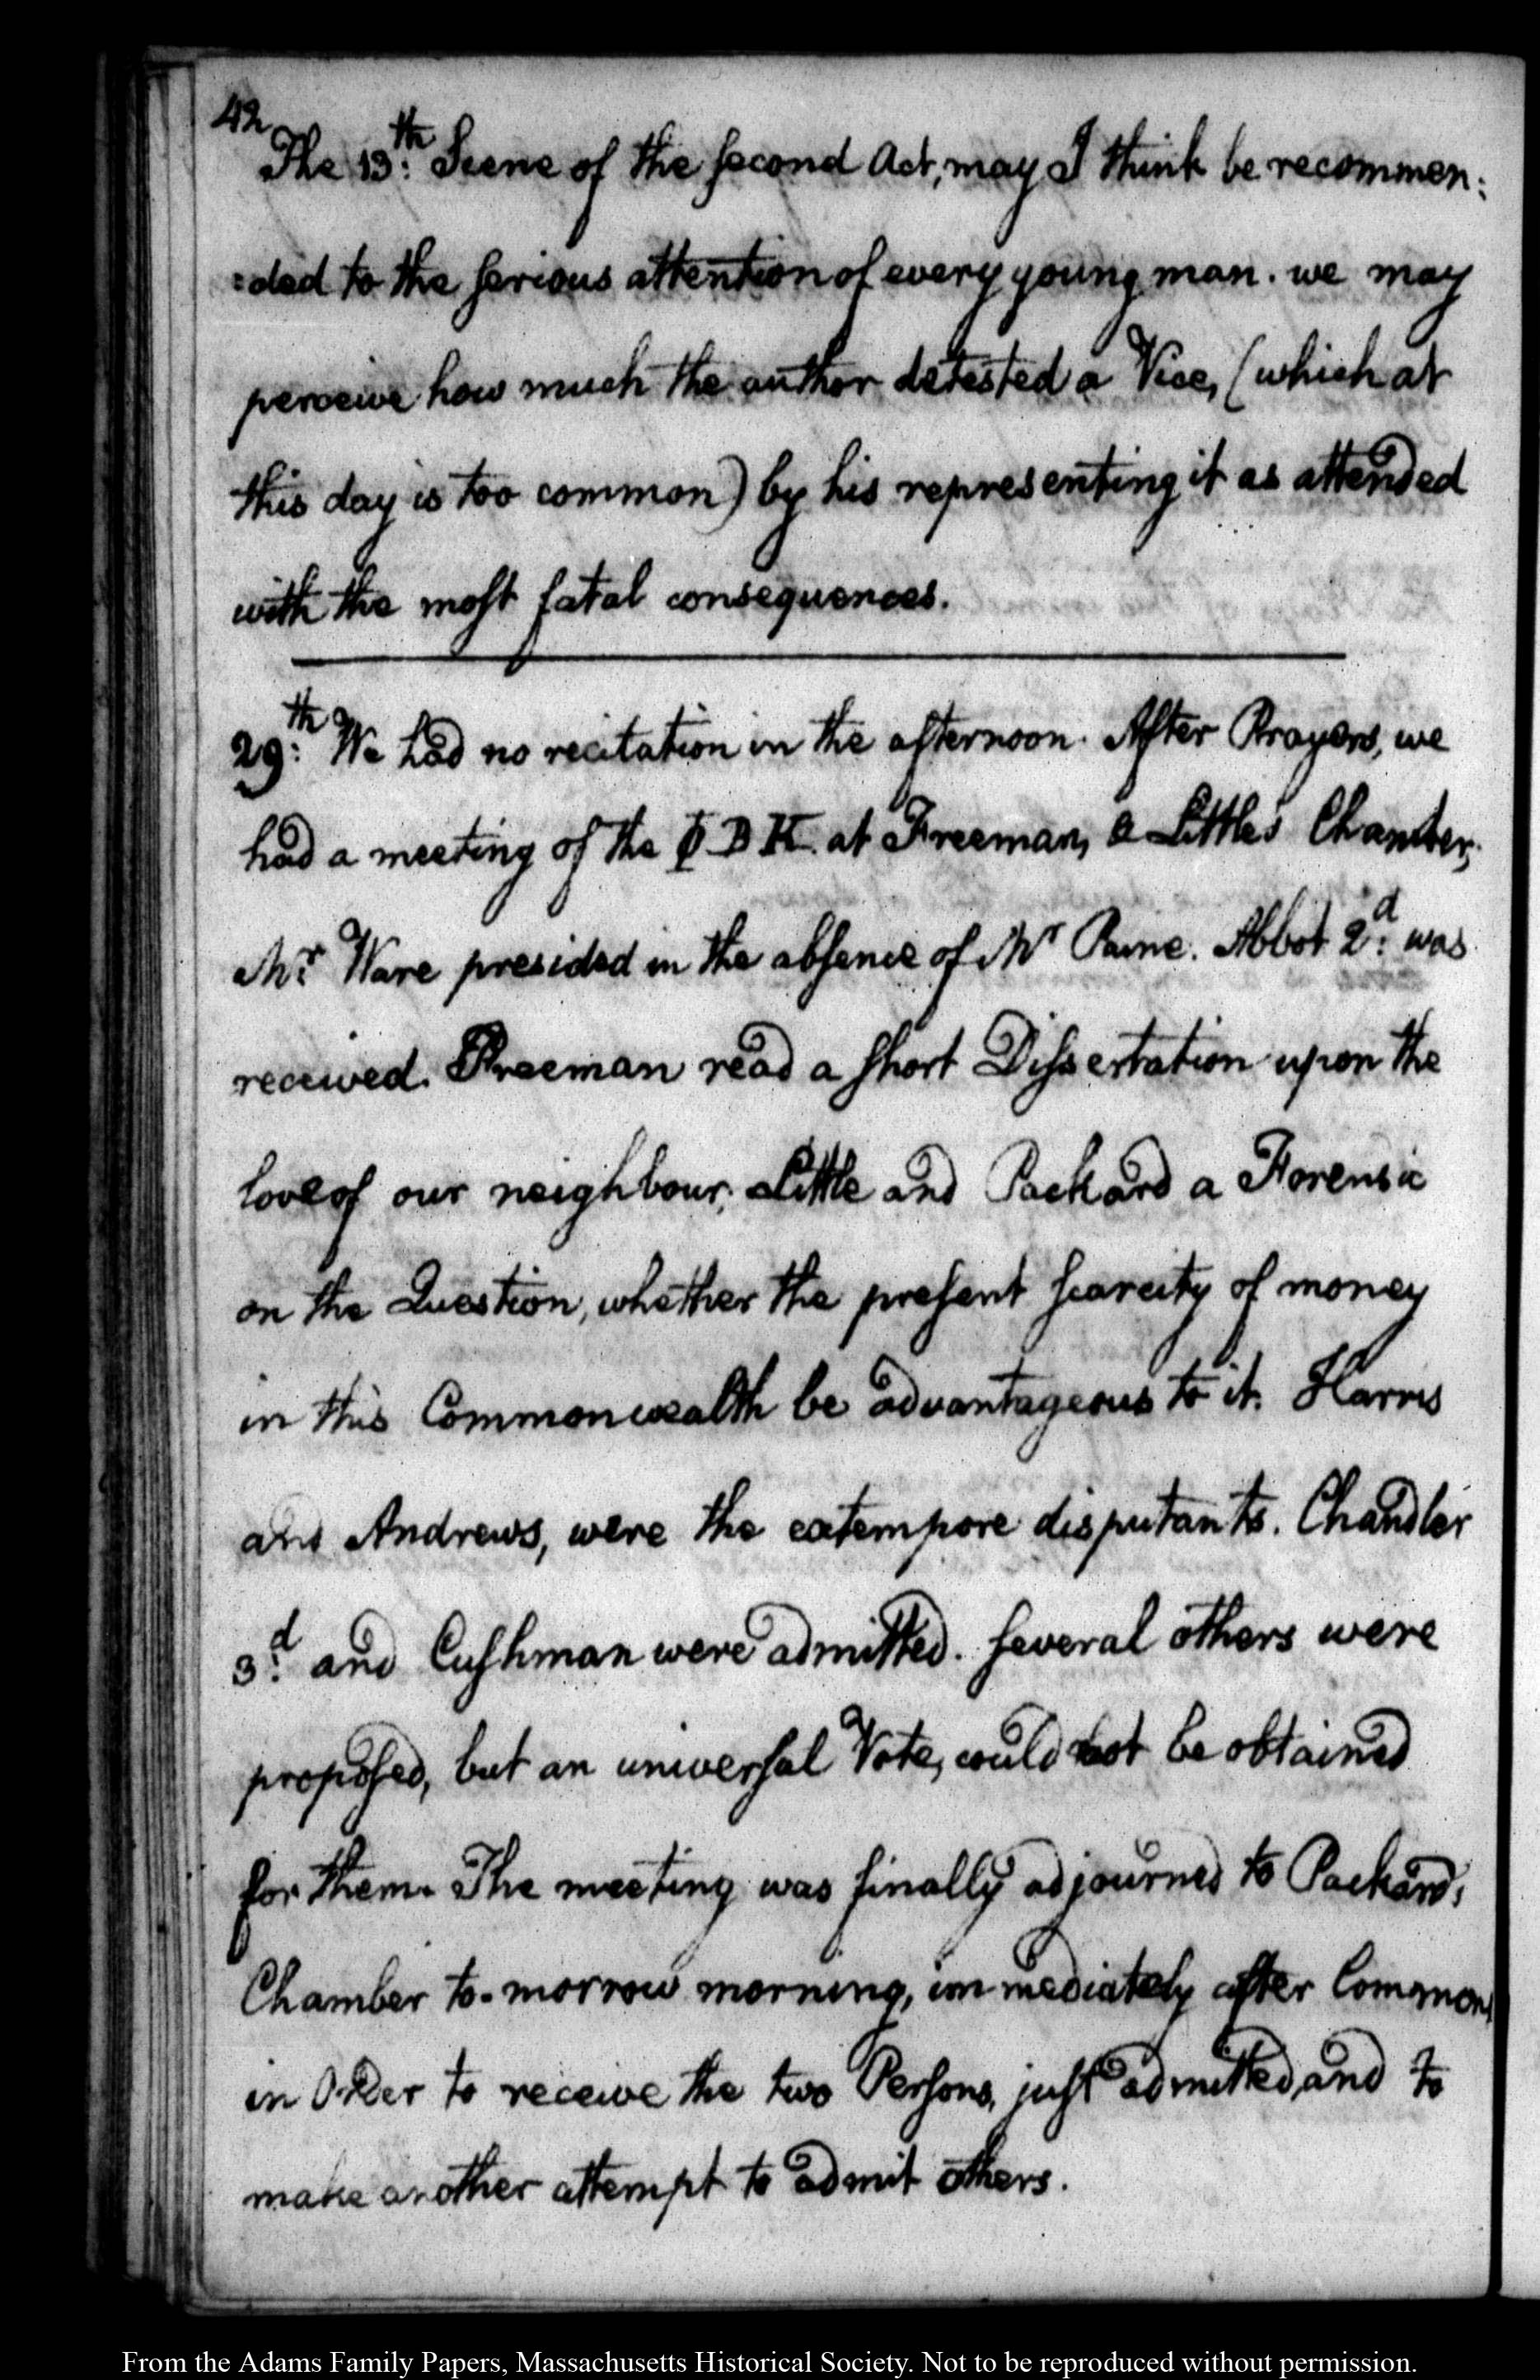 42
The 13:th Scene of the second Act, may I think be recommen:
:ded to the serious attention of every young man. we may
perceive how much the author detested a Vice, (which at
this day is too common) by his representing it as attended
with the most fatal consequences.
29:th We had no recitation in the afternoon. After Prayers, we
had a meeting of the Φ B K. at Freeman, & Little's Chamber,
Mr. Ware presided in the absence of Mr Paine. Abbot 2:d was
received. Freeman read a short Dissertation upon the
love of our neighbour, Little and Packard a Forensic
on the Question, whether the present scarcity of money
in this Commonwealth be advantageous to it. Harris
and Andrews, were the extempore disputants. Chandler
3:d and Cushman were admitted. Several others were
proposed, but an universal Vote, could not be obtained
for them. The meeting was finally adjourned to Packard's
Chamber to-morrow morning, immediately after Commons
in Order to receive the two Persons, just admitted, and to
make another attempt to admit others.
From the Adams Family Papers, Massachusetts Historical Society. Not to be reproduced without permission.